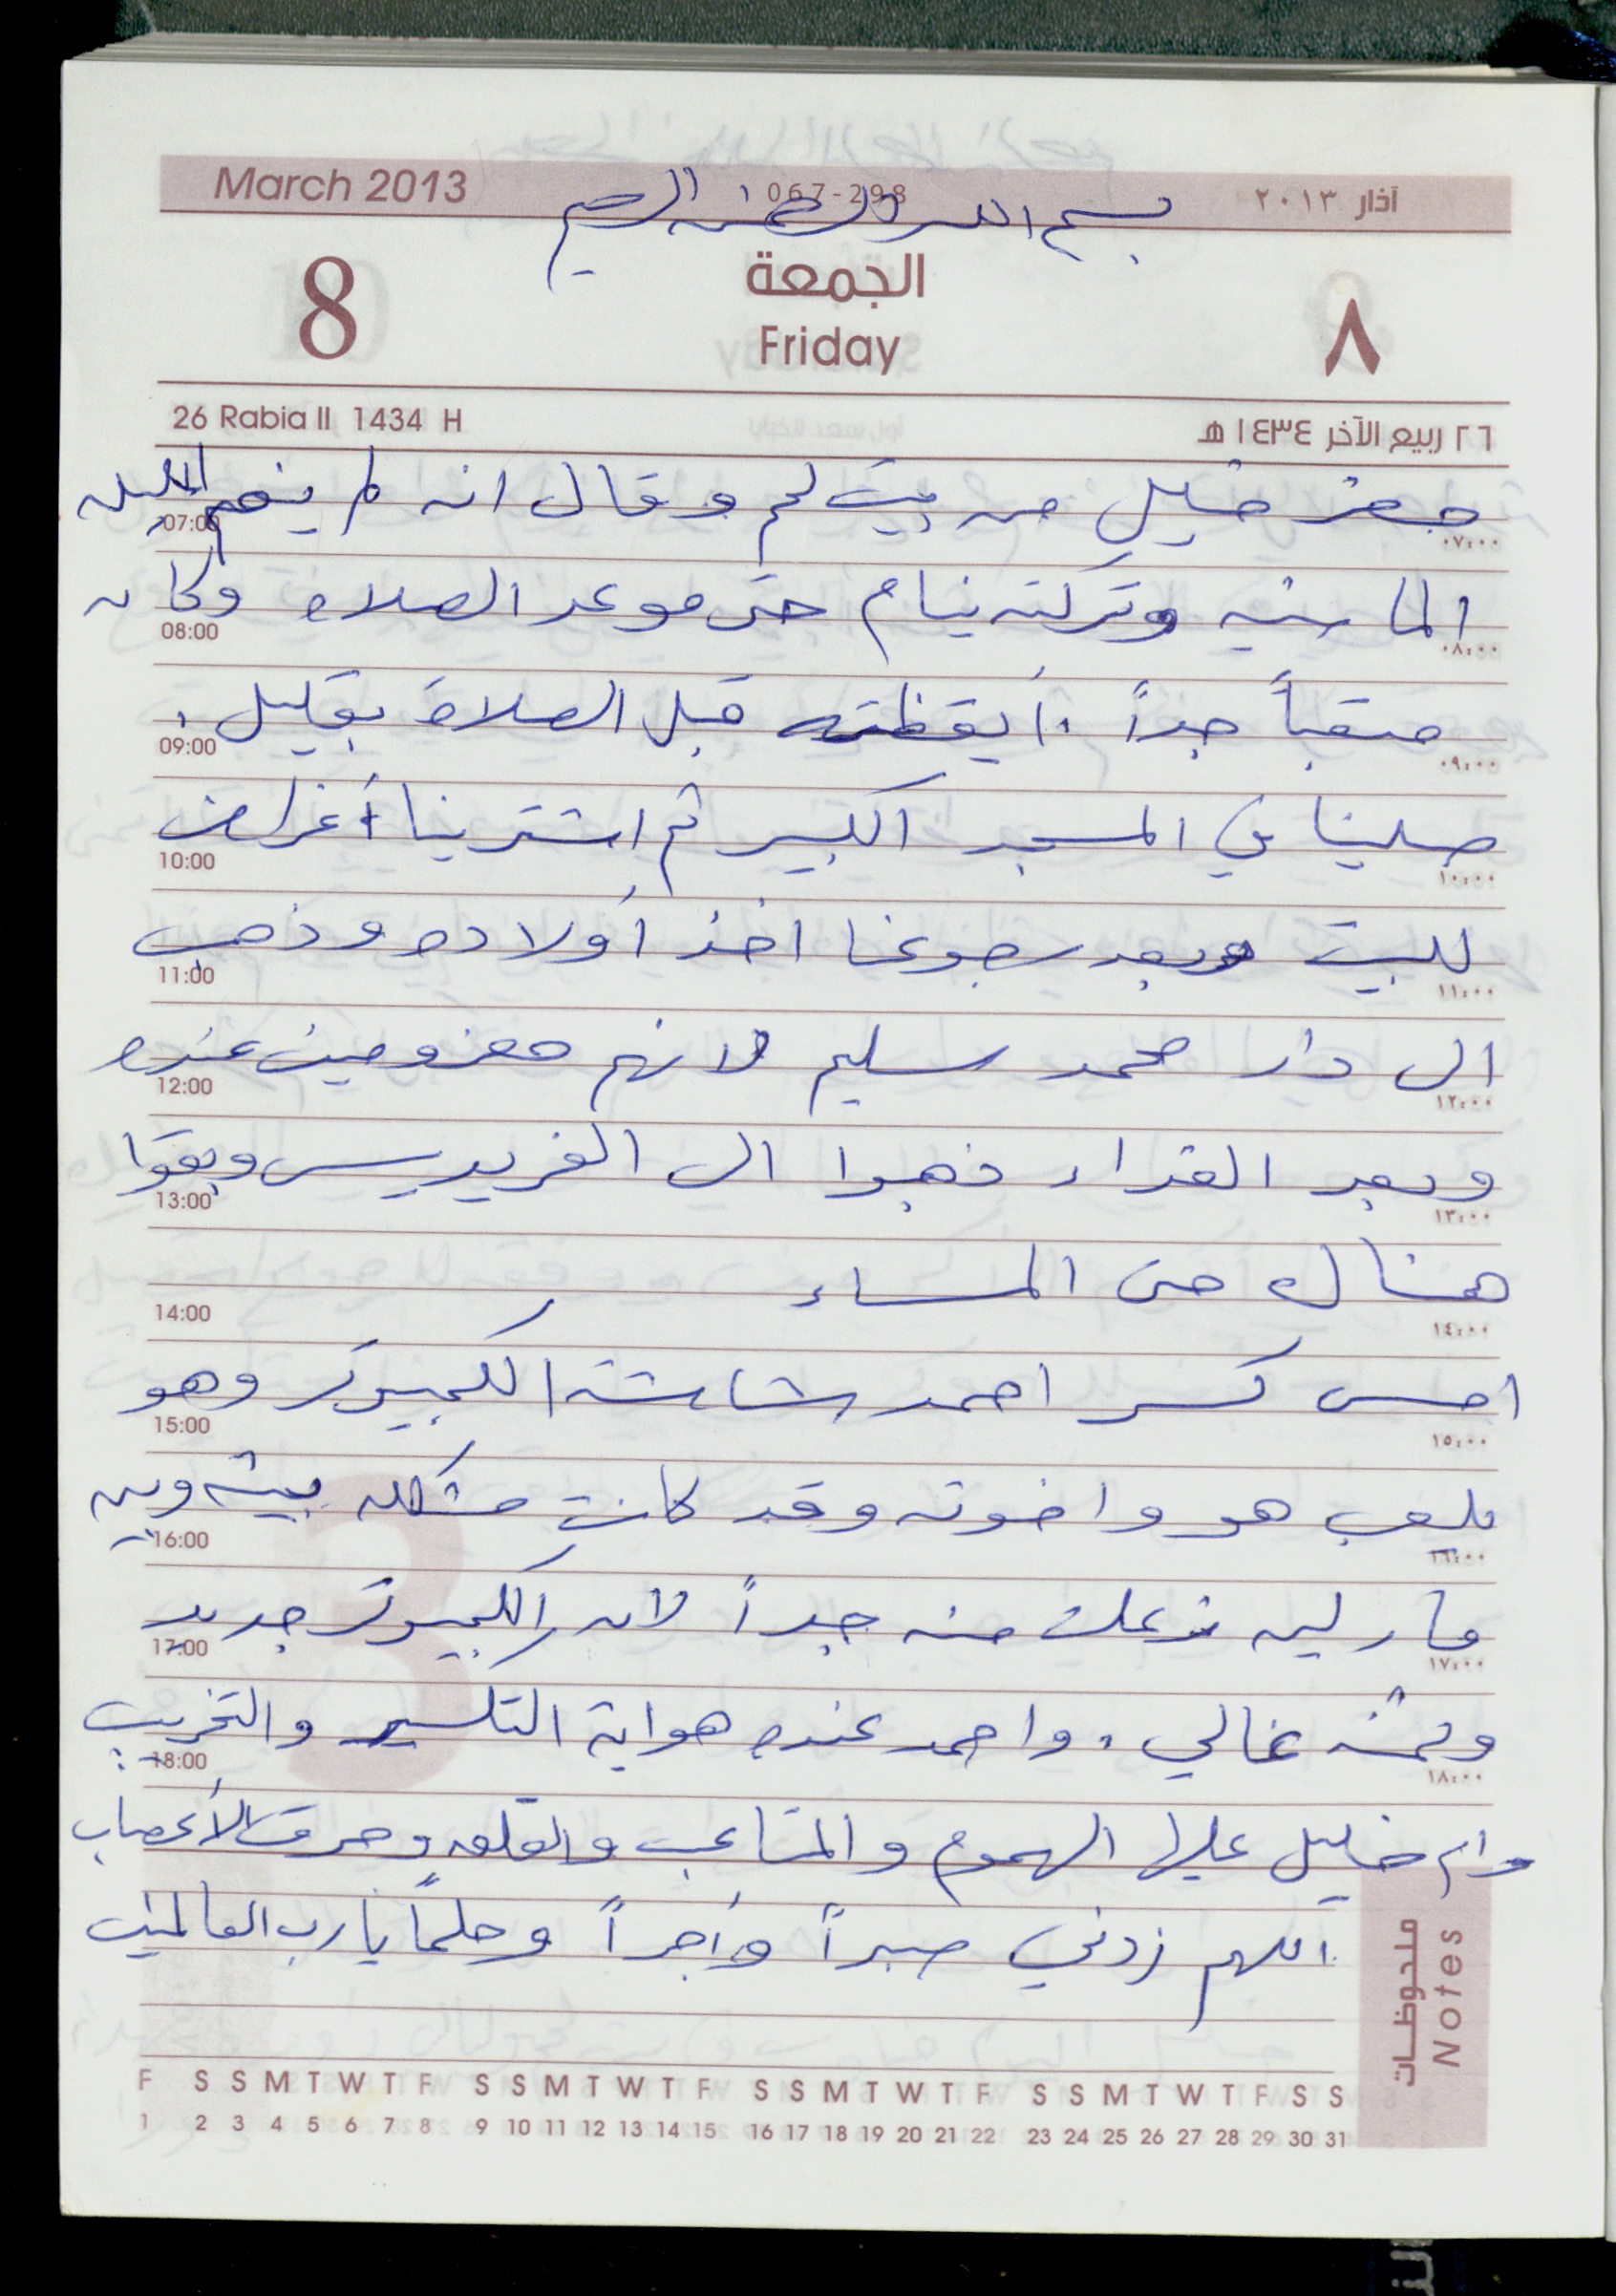 March 2013 067-298 آذار ٢٠١٣
بسم الله الرحمن الرحيم
8 الجمعة ٨
Friday
26 Rabia II 1434 H ٢٦ ربيع الآخر ١٤٣٤ هـ
حضر خليل من بيت لحم وقال انه لم ينم الليله
07:00 ٠٧:٠٠
الماضيه وتركته ينام حتى موعد الصلاه وكان
08:00 ٠٨:٠٠
متعباً جداً . أيقظته قبل الصلاة بقليل .
09:00 ٠٩:٠٠
صلينا في المسجد الكبير ثم اشترينا أغراض
10:00 ١٠:٠٠
للبيت وبعد رجوعنا اخذ أولاده وذهب
11:00 ١١:٠٠
الى دار محمد سليم لانهم معزومين عنده
12:00 ١٢:٠٠
وبعد الغداء ذهبوا الى الفريديس وبقوا
13:00 ١٣:٠٠
هناك حتى المساء
14:00 ١٤:٠٠
امس كسر احمد شاشة الكمبيوتر وهو
15:00 ١٥:٠٠
يلعب هو واخوته وقد كانت مشكله بينه وبين
16:00 ١٦:٠٠
مارلين زعلت منه جداً لان الكمبيوتر جديد
17:00 ١٧:٠٠
وثمنه غالي . واحمد عنده هواية التكسير والتخريب
18:00 ١٨:٠٠
وام خليل عليها الهموم والمتاعب والقلق وحرق الأعصاب
اللهم زدني صبراً وأجراً وحلماً يا رب العالمين
ملحوظات
Notes
F S S M T W T F S S M T W T F S S M T W T F S S M T W T F S S
1 2 3 4 5 6 7 8 9 10 11 12 13 14 15 16 17 18 19 20 21 22 23 24 25 26 27 28 29 30 31